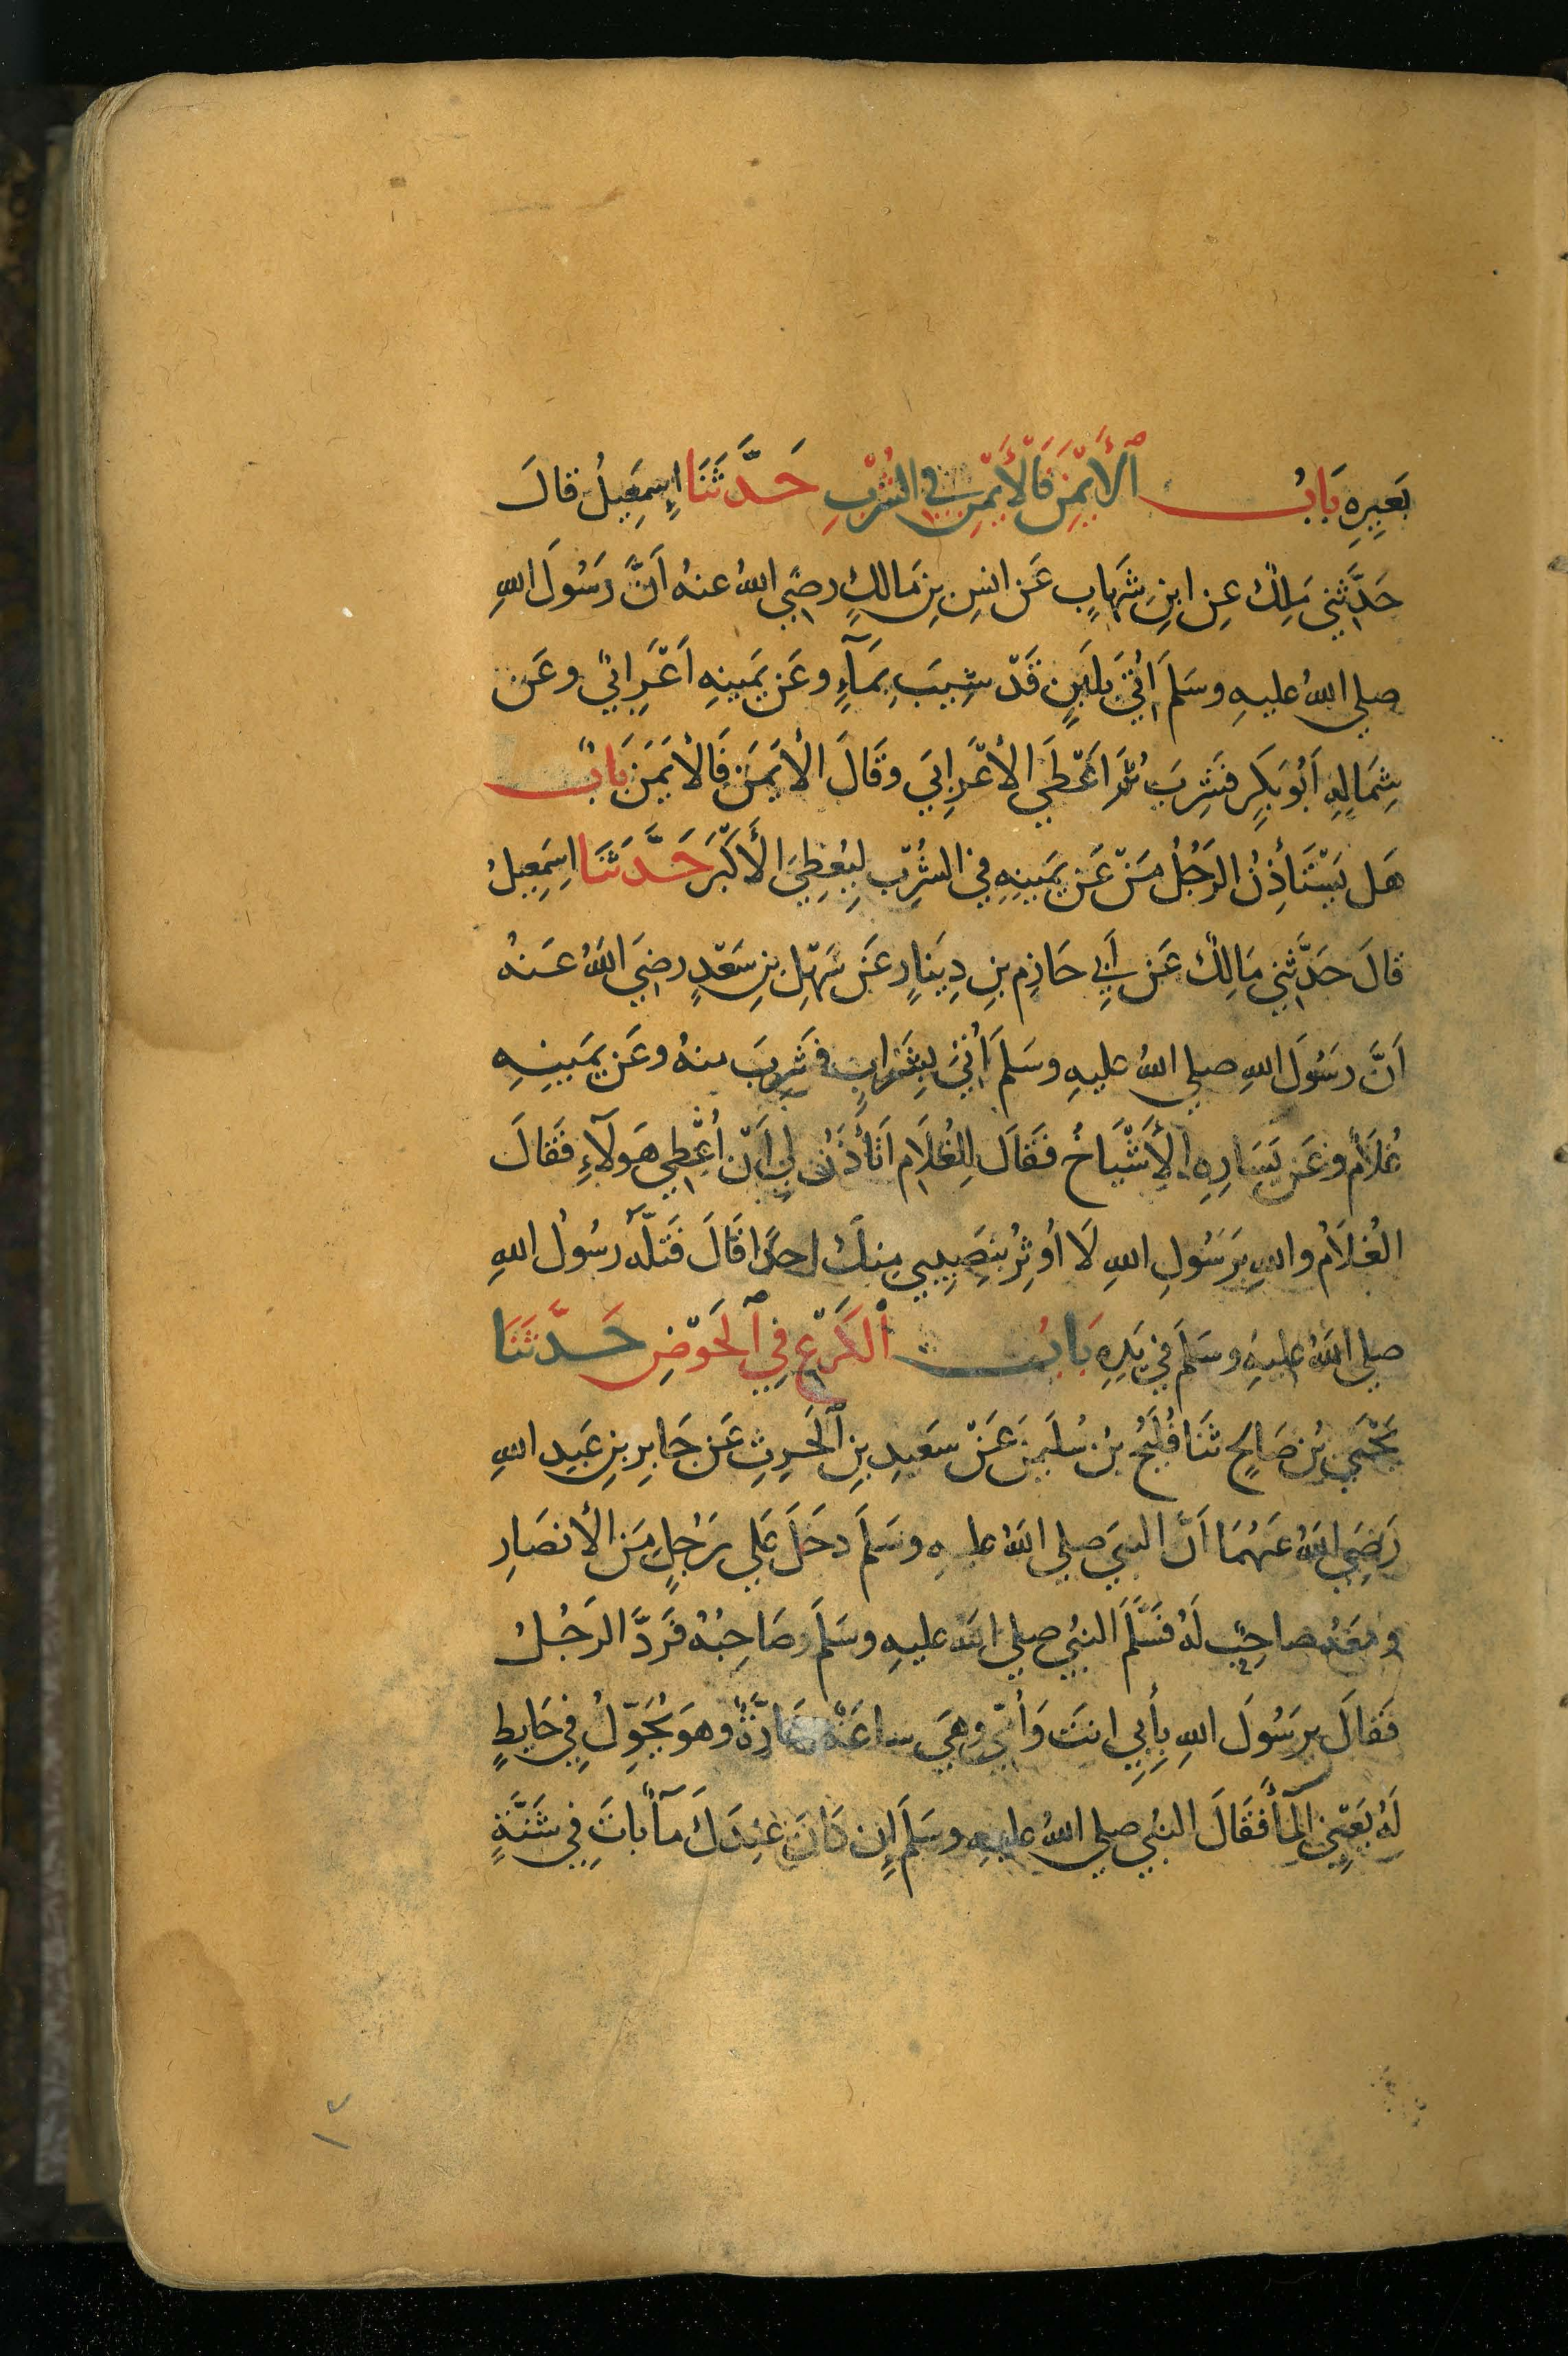 بَعِيرِهِ بَابُ ٱلْأَيْمَنَ فَالْأَيْمَنِ فِي الشُّرْبِ حَدَّثَنَا إِسمَعِيلُ قالَ
حَدَّثَنِي مَلِكٌ عنِ ابنِ شِهَابٍ عَن انسِ بنِ مَالكٍ رضي اللهُ عنهُ اَنَّ رَسُولَ اللهِ
صلي اللهُ عليهِ وسَلمَ اُتِيَ بلَبَنٍ قَدْ شِيبَ بمَآءٍ وعَن يمَينهِ اَعْرَابيٌ وعَن
شِمَالِهِ اَبُو بَكِر فَشَرِبَ ثُمَّ اَعْطَي الأعْرَابيَ وقَالَ الأيمَنَ فَالأيمَنَ بَابٌ
هَل يَسْتَأذِنُ الرَجُلُ مَنْ عَن يمَينِهِ في الشُرْبِ لِيُعْطِيَ الأَكْبَرَ حَدَّثَنَا اسمَعِيلُ
قالَ حَدَّثَنِي مَالِكٌ عَن اَبي حَازِمِ بنِ دِينَارٍ عَن سَهْلِ بنِ سَعْدٍ رضيَ اللهُ عَنهُ
اَنَّ رَسُولَ اللهِ صلي اللهُ عليهِ وسَلمَ اُتيَ بِشَرَابٍ فَشَرِبَ منهُ وعَن يمَينِهِ
غُلَامٌ وعَن يَسَارِهِ الأَشْيَاخُ فَقَالَ لِلغُلَامِ اَتَأذَنُ لِي اَنْ اُعْطِي هَولَآءِ فَقالَ
الغُلَامُ واللهِ يرَسُولَ اللهِ لَا اُوثِرُ بنَصِيبِي مِنكَ احدًا قَالَ فَتَلَّهُ رسُولُ اللهِ
صلي اللهُ عليهِ وسَلمَ في يَدِهِ بَابُ ٱلكَرْعِ فِي ٱلحَوْضِ حَدَّثَنَا
يَحْيَي بنُ صَالحٍ ثَنَا فُلَيحُ بنُ سُلَيمنَ عَنْ سَعيدِ بنِ ٱلحَرثِ عَن جَابِرِ بنِ عَبدِ اللهِ
رَضِيَ اللهُ عَنهُمَا اَنَّ النبيَ صلي اللهُ عليهِ وسَلمَ دخَلَ عَلي رَجُلٍ مَن الأنصَارِ
ومَعَهُ صاحِبٌ لَهُ فَسَلَّمَ النبيُ صلي اللهُ عليهِ وسَلمَ وصَاحِبُهُ فَرَدَّ الرَجُلُ
فَقالَ يرَسُولَ اللهِ بِأَبِي انتَ وَأُمِّي وهيَ ساعَةٌ حَارَّةٌ وهوَ يُحَوّلُ فِي حَايطٍ
لَهُ يَعْنِي المَآءَ فَقَالَ النبيُ صلي اللهُ عليهِ وسَلمَ إِن كَانَ عِندَكَ مآءٌ باتَ فِي شَنَّةٍ